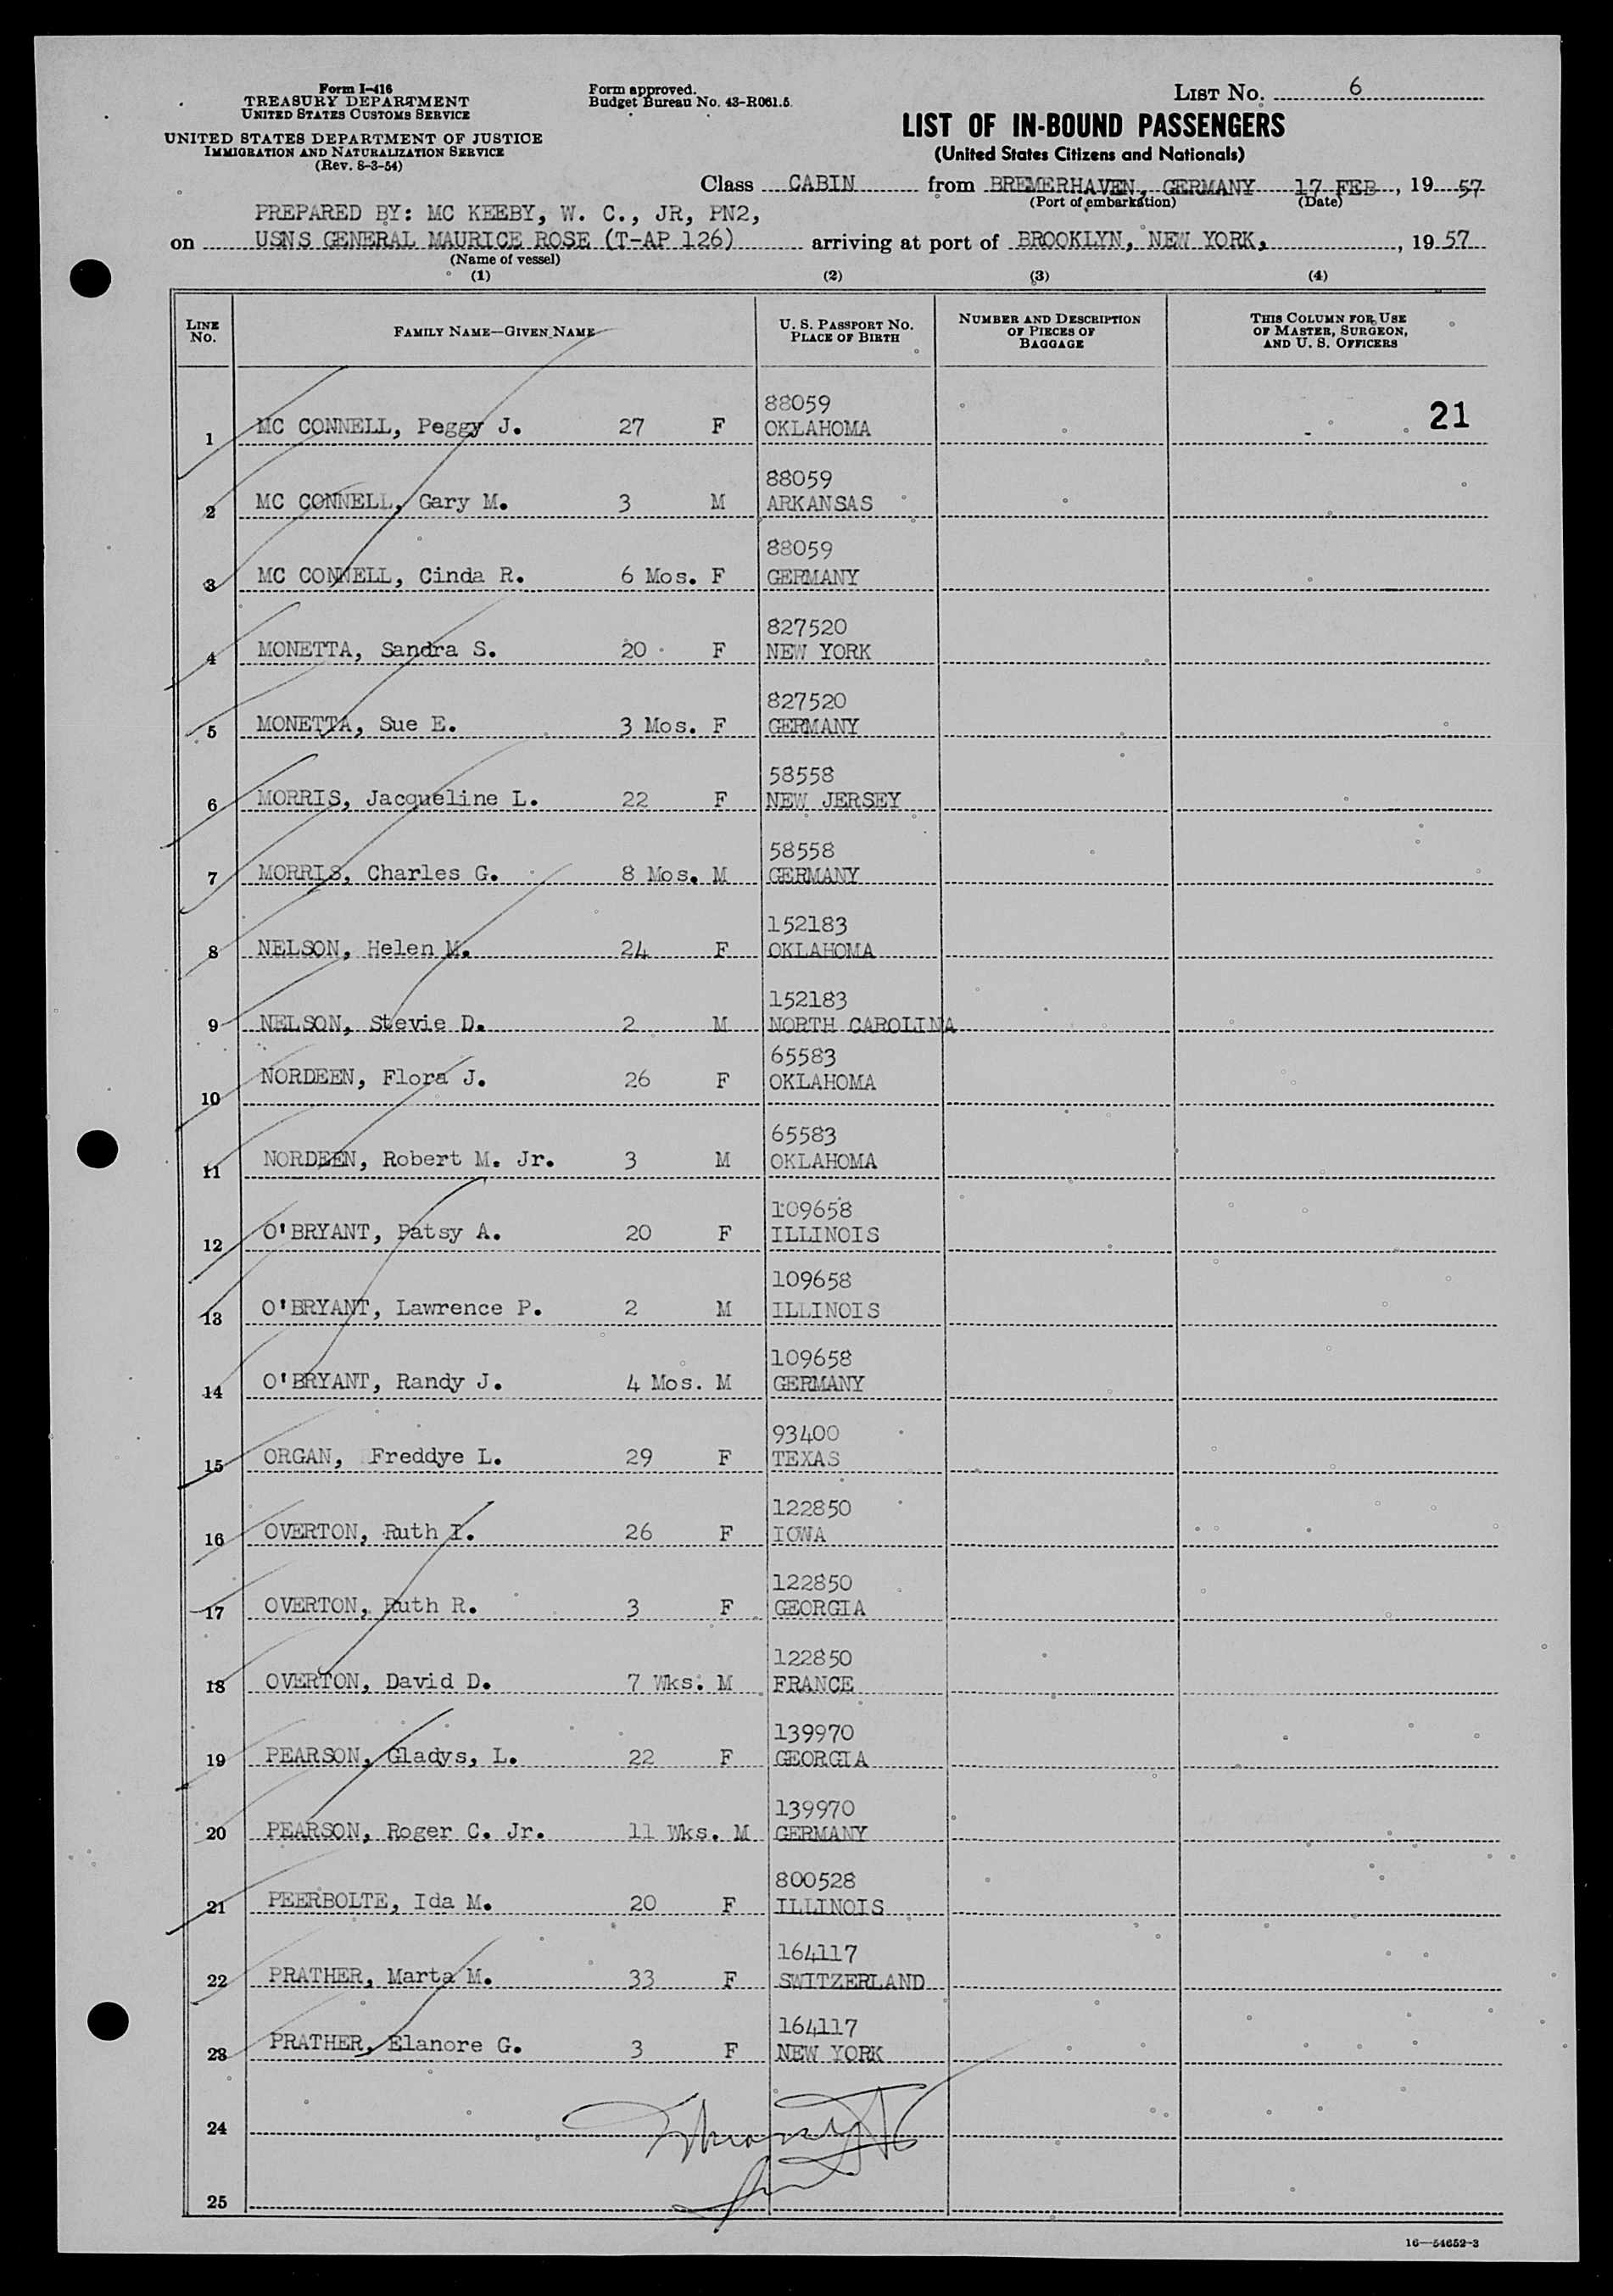 Form I-416
TREASURY DEPARTMENT
UNITED STATES CUSTOMS SERVICE
UNITED STATES DEPARTMENT OF JUSTICE
IMMIGRATION AND NATURALIZATION SERVICE
(Rev. 8-3-54)
Form approved.
Budget Bureau No. 43-R061.5.
LIST NO. 6
LIST OF IN-BOUND PASSENGERS
(United States Citizens and Nationals)
Class CABIN from BREMERHAVEN, GERMANY 17 FEB, 19 57
(Port of embarkation) (Date)
PREPARED BY: MC KEEBY, W. C., JR, PN2,
on USNS GENERAL MAURICE ROSE (T-AP 126) arriving at port of BROOKLYN, NEW YORK, , 19 57
(Name of vessel)
(1) (2) (3) (4)
LINE NO. FAMILY NAME—GIVEN NAME U. S. PASSPORT NO. PLACE OF BIRTH NUMBER AND DESCRIPTION OF PIECES OF BAGGAGE THIS COLUMN FOR USE OF MASTER, SURGEON, AND U. S. OFFICERS
88059
1 MC CONNELL, Peggy J. 27 F OKLAHOMA 21
88059
2 MC CONNELL, Gary M. 3 M ARKANSAS
88059
3 MC CONNELL, Cinda R. 6 Mos. F GERMANY
827520
4 MONETTA, Sandra S. 20 F NEW YORK
827520
5 MONETTA, Sue E. 3 Mos. F GERMANY
58558
6 MORRIS, Jacqueline L. 22 F NEW JERSEY
58558
7 MORRIS, Charles G. 8 Mos. M GERMANY
152183
8 NELSON, Helen M. 24 F OKLAHOMA
152183
9 NELSON, Stevie D. 2 M NORTH CAROLINA
65583
10 NORDEEN, Flora J. 26 F OKLAHOMA
65583
11 NORDEEN, Robert M. Jr. 3 M OKLAHOMA
109658
12 O'BRYANT, Patsy A. 20 F ILLINOIS
109658
13 O'BRYANT, Lawrence P. 2 M ILLINOIS
109658
14 O'BRYANT, Randy J. 4 Mos. M GERMANY
93400
15 ORGAN, Freddye L. 29 F TEXAS
122850
16 OVERTON, Ruth I. 26 F IOWA
122850
17 OVERTON, Ruth R. 3 F GEORGIA
122850
18 OVERTON, David D. 7 Wks. M FRANCE
139970
19 PEARSON, Gladys, L. 22 F GEORGIA
139970
20 PEARSON, Roger C. Jr. 11 Wks. M GERMANY
800528
21 PEERBOLTE, Ida M. 20 F ILLINOIS
164117
22 PRATHER, Marta M. 33 F SWITZERLAND
164117
23 PRATHER, Elanore G. 3 F NEW YORK
24
25
16—54652-3